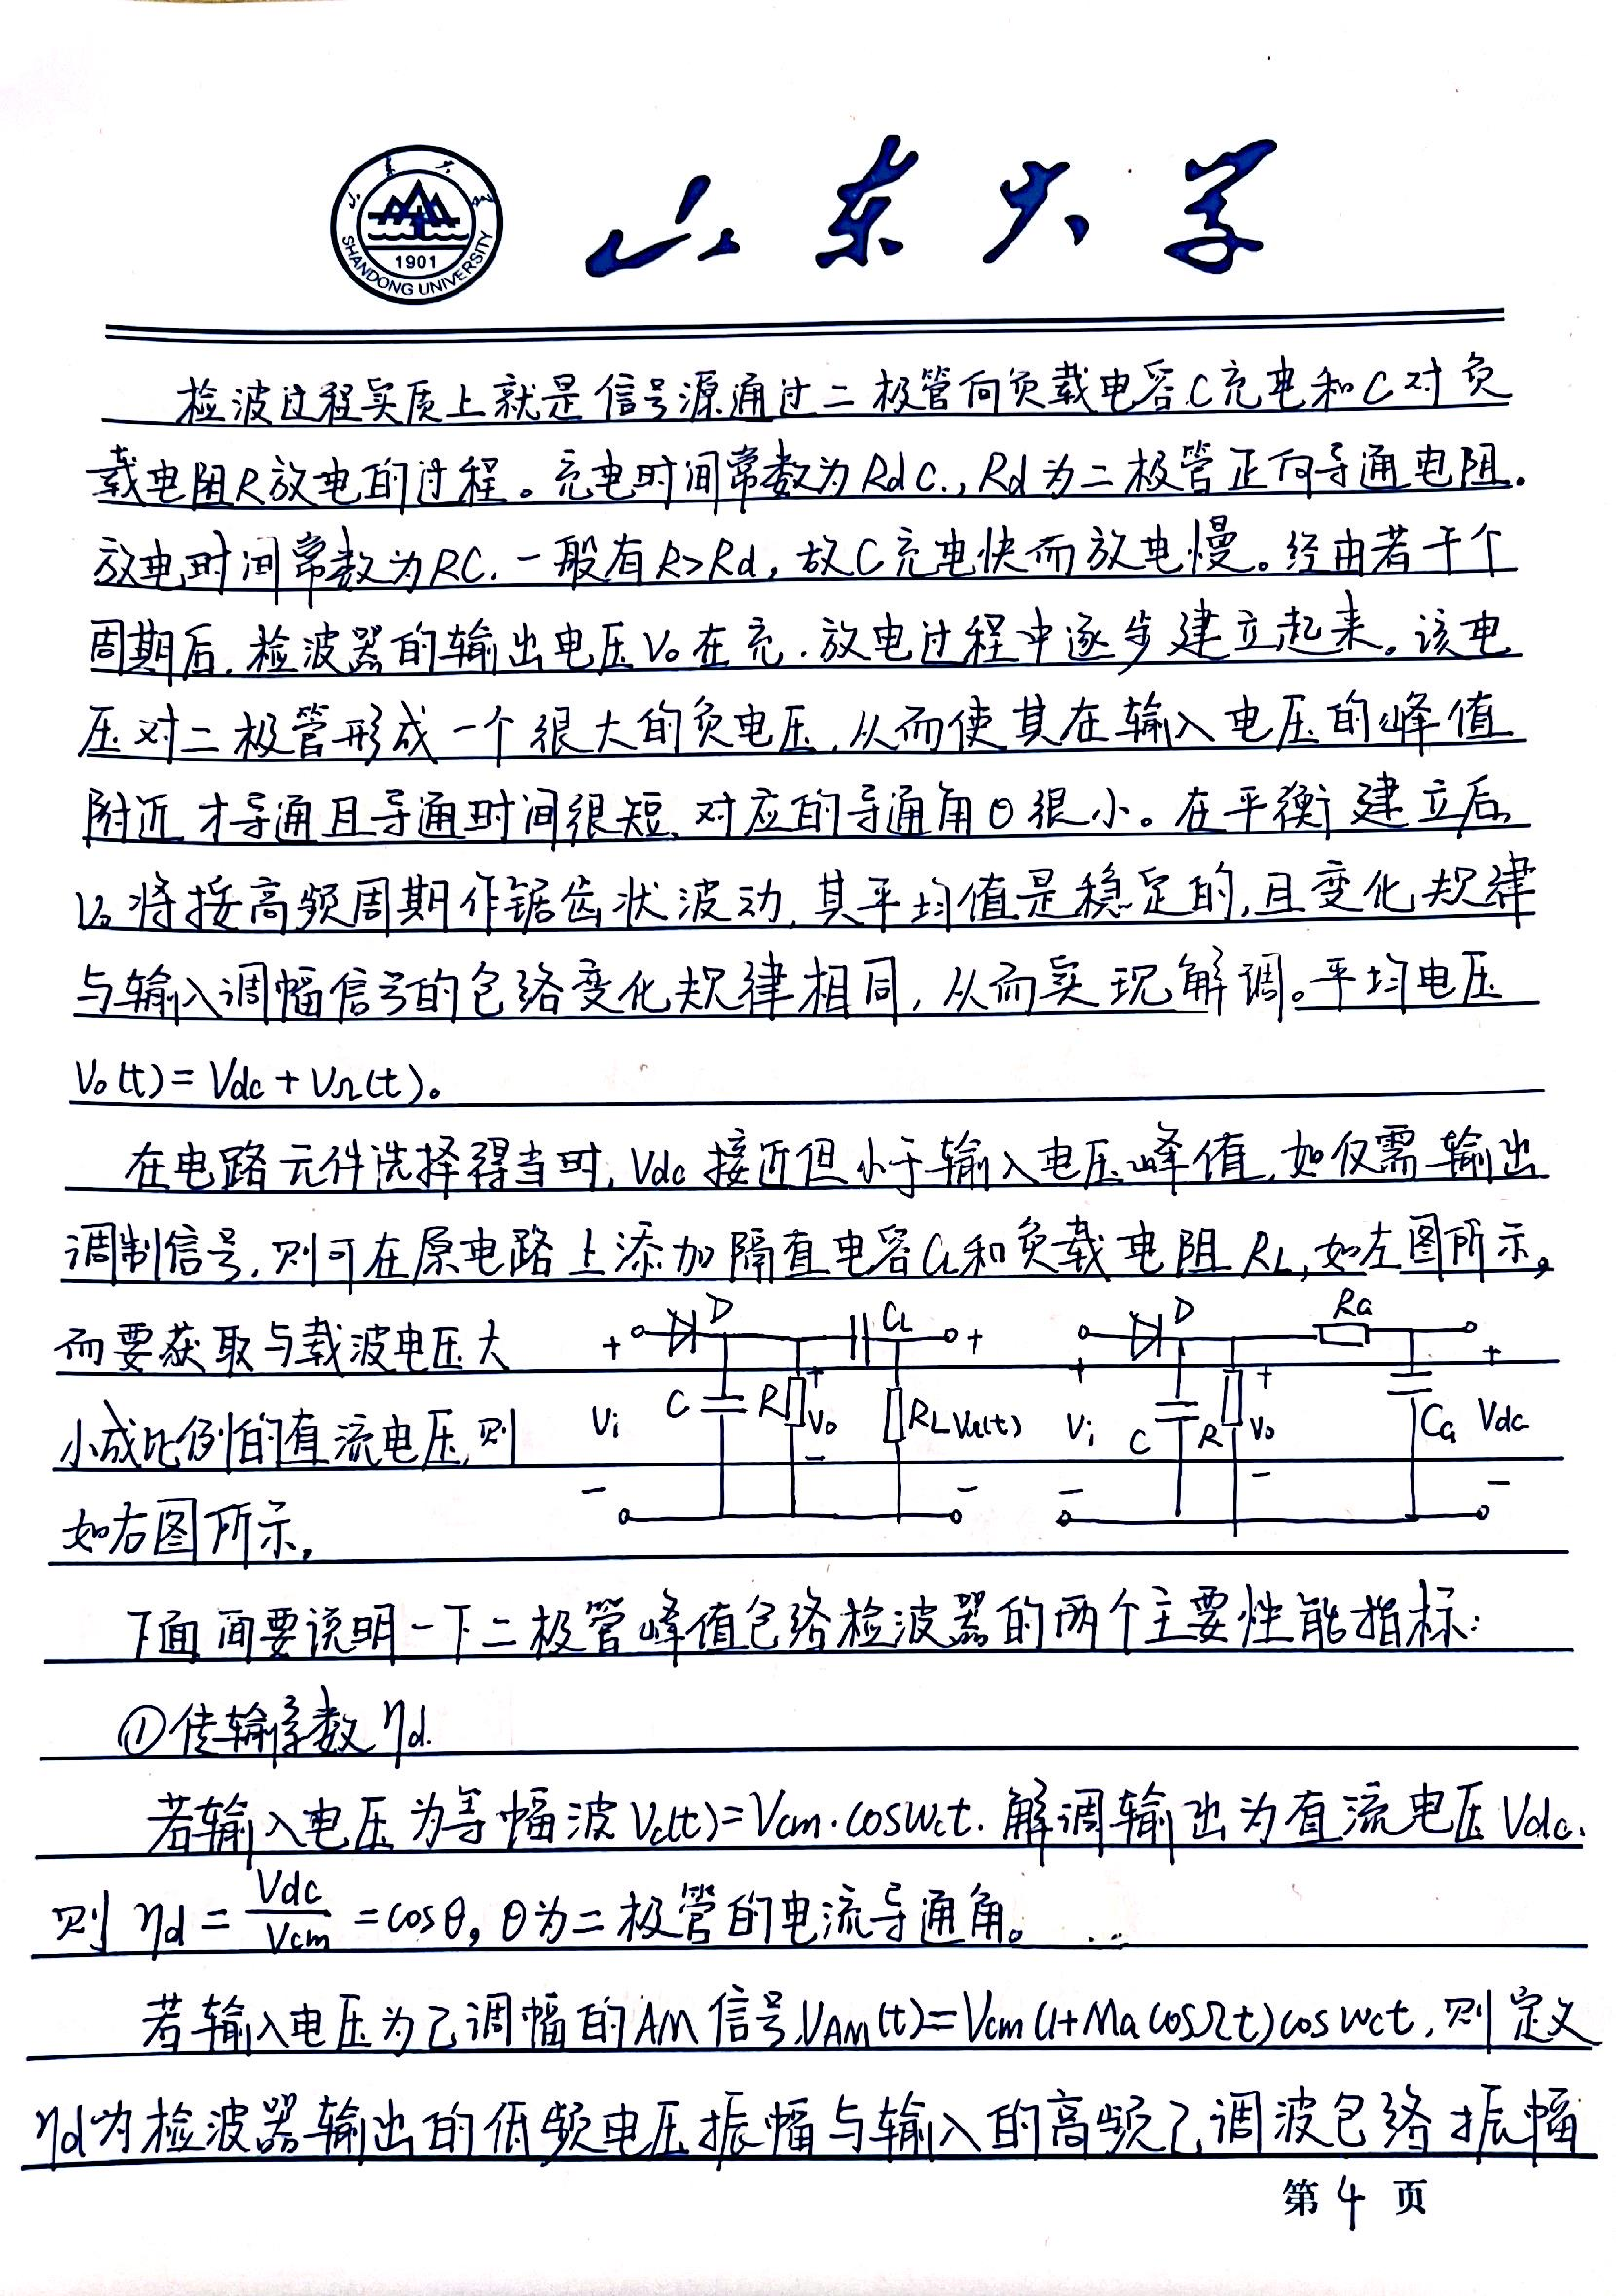 山东大学
SHANDONG UNIVERSITY
1901
山东大学
检波过程实质上就是信号源通过二极管向负载电容C充电和C对负
载电阻R放电的过程。充电时间常数为RdC.,Rd为二极管正向导通电阻.
放电时间常数为RC.一般有R>Rd,故C充电快而放电慢。经由若干个
周期后,检波器的输出电压Vo在充.放电过程中逐步建立起来。该电
压对二极管形成一个很大的负电压,从而使其在输入电压的峰值
附近才导通且导通时间很短,对应的导通角θ很小。在平衡建立后
Vo将按高频周期作锯齿状波动,其平均值是稳定的,且变化规律
与输入调幅信号的包络变化规律相同,从而实现解调。平均电压
Vo(t)=Vdc+VΩ(t)。
在电路元件选择得当时,Vdc接近但小于输入电压峰值,如仅需输出
调制信号,则可在原电路上添加隔直电容CL和负载电阻RL,如左图所示,
而要获取与载波电压大
小成比例的直流电压,则
如右图所示,
+ D CL +
C R + Vo - RL VΩ(t)
Vi
- -
D Ra
+ + +
Vi C R Vo Ca Vdc
- - -
下面间要说明一下二极管峰值包络检波器的两个主要性能指标:
①传输系数ηd.
若输入电压为等幅波Vc(t)=Vcm·cosωct.解调输出为直流电压Vdc.
则ηd=Vdc/Vcm=cosθ,θ为二极管的电流导通角。
若输入电压为已调幅的AM信号,VAM(t)=Vcm(1+MacosΩt)cosωct,则定义
ηd为检波器输出的低频电压振幅与输入的高频已调波包络振幅
第4页